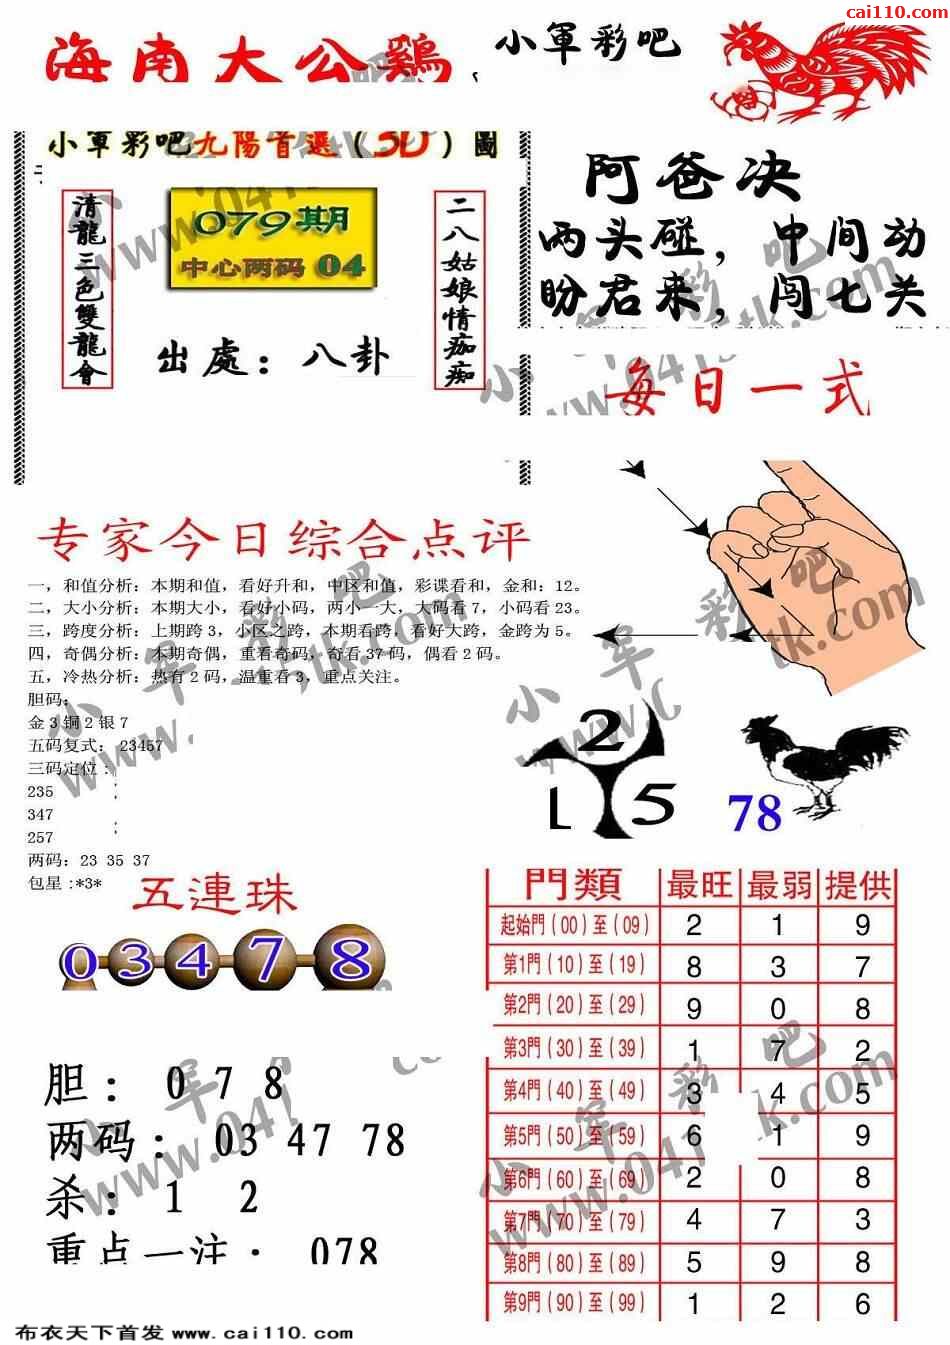 cai110.com
海南大公鷄
小軍彩吧
小軍彩吧九陽首選（3D）圖
清龍三色雙龍會
079期
中心两码 04
二八姑娘情痴痴
出處：八卦
阿爸决
两头碰，中间动
盼君来，闯七关
每日一式
专家今日综合点评
一，和值分析：本期和值，看好升和，中区和值，彩谍看和，金和：12。
二，大小分析：本期大小，看好小码，两小一大，大码看 7，小码看 23。
三，跨度分析：上期跨 3，小区之跨，本期看跨，看好大跨，金跨为 5。
四，奇偶分析：本期奇偶，重看奇码，奇看 37 码，偶看 2 码。
五，冷热分析：热有 2 码，温重看 3，重点关注。
胆码：
金 3 铜 2 银 7
五码复式： 23457
三码定位：
235
347
257
两码：23 35 37
包星 :*3*
2
1 5
78
五連珠
0 3 4 7 8
胆： 0 7 8
两码： 03 47 78
杀：1 2
重点一注： 078
門類 最旺 最弱 提供
起始門（00）至（09） 2 1 9
第1門（10）至（19） 8 3 7
第2門（20）至（29） 9 0 8
第3門（30）至（39） 1 7 2
第4門（40）至（49） 3 4 5
第5門（50）至（59） 6 1 9
第6門（60）至（69） 2 0 8
第7門（70）至（79） 4 7 3
第8門（80）至（89） 5 9 8
第9門（90）至（99） 1 2 6
布衣天下首发 www.cai110.com